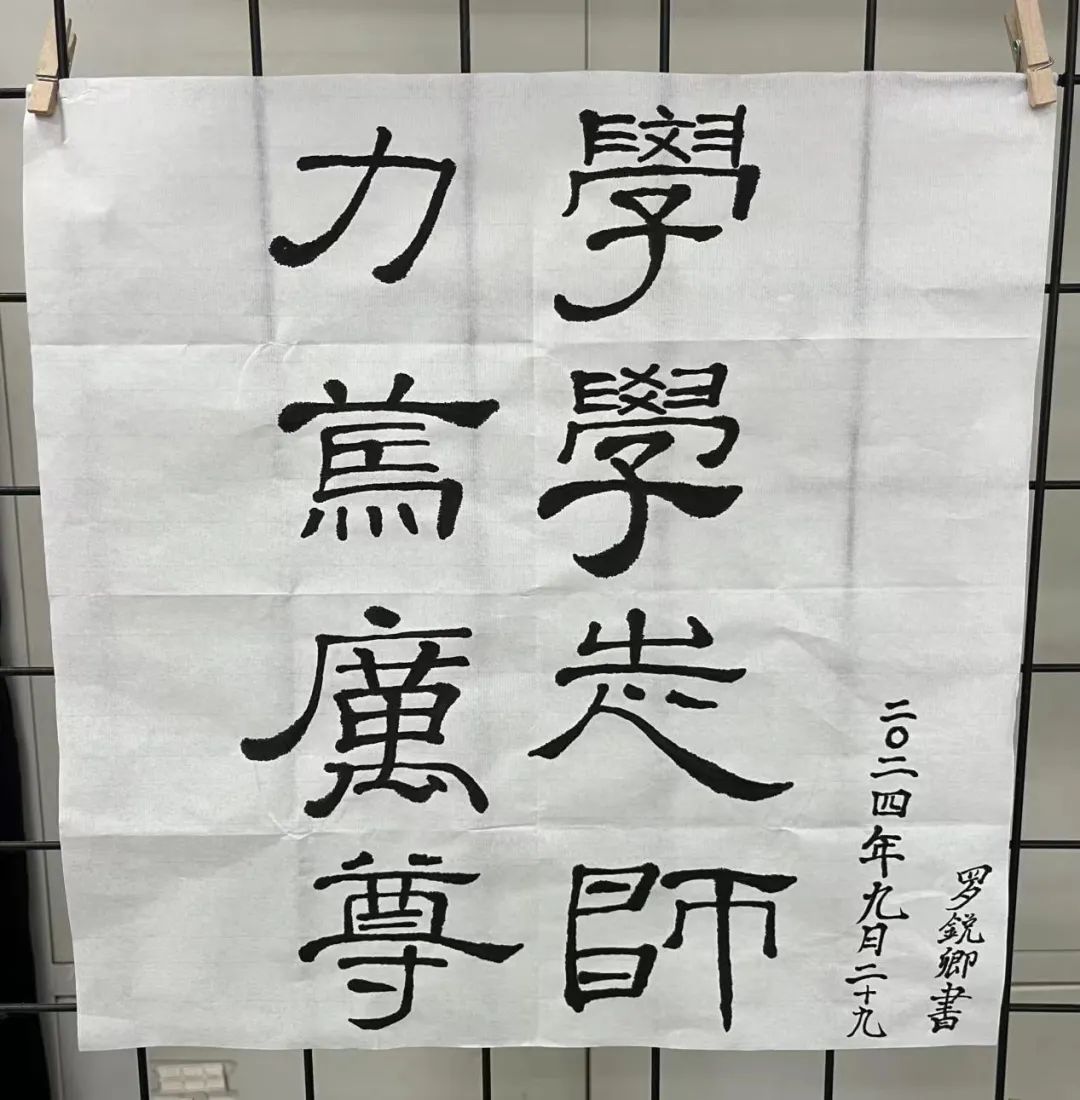 力學
篤學
厲志
尊師
二〇二四年九月二十九
罗鋭卿書